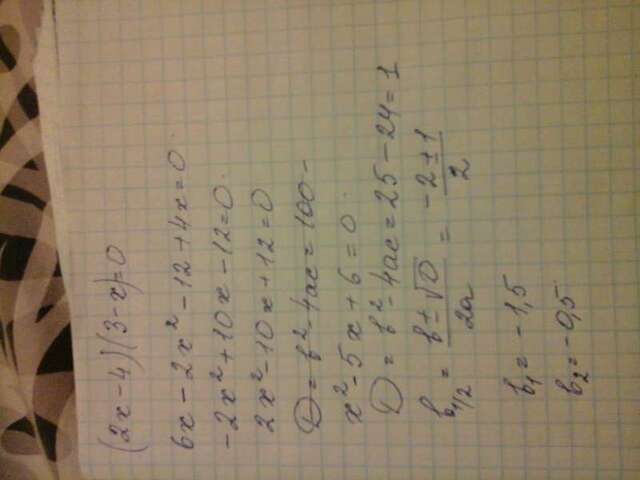 (2x-4)(3-x)=0
6x-2x²-12+4x=0.
-2x²+10x-12=0.
2x²-10x+12=0
D=b²-4ac=100-
x²-5x+6=0.
D=b²-4ac=25-24=1
b₁/₂ = b±√D / 2a = -2±1 / 2
b₁=-1,5
b₂=-0,5